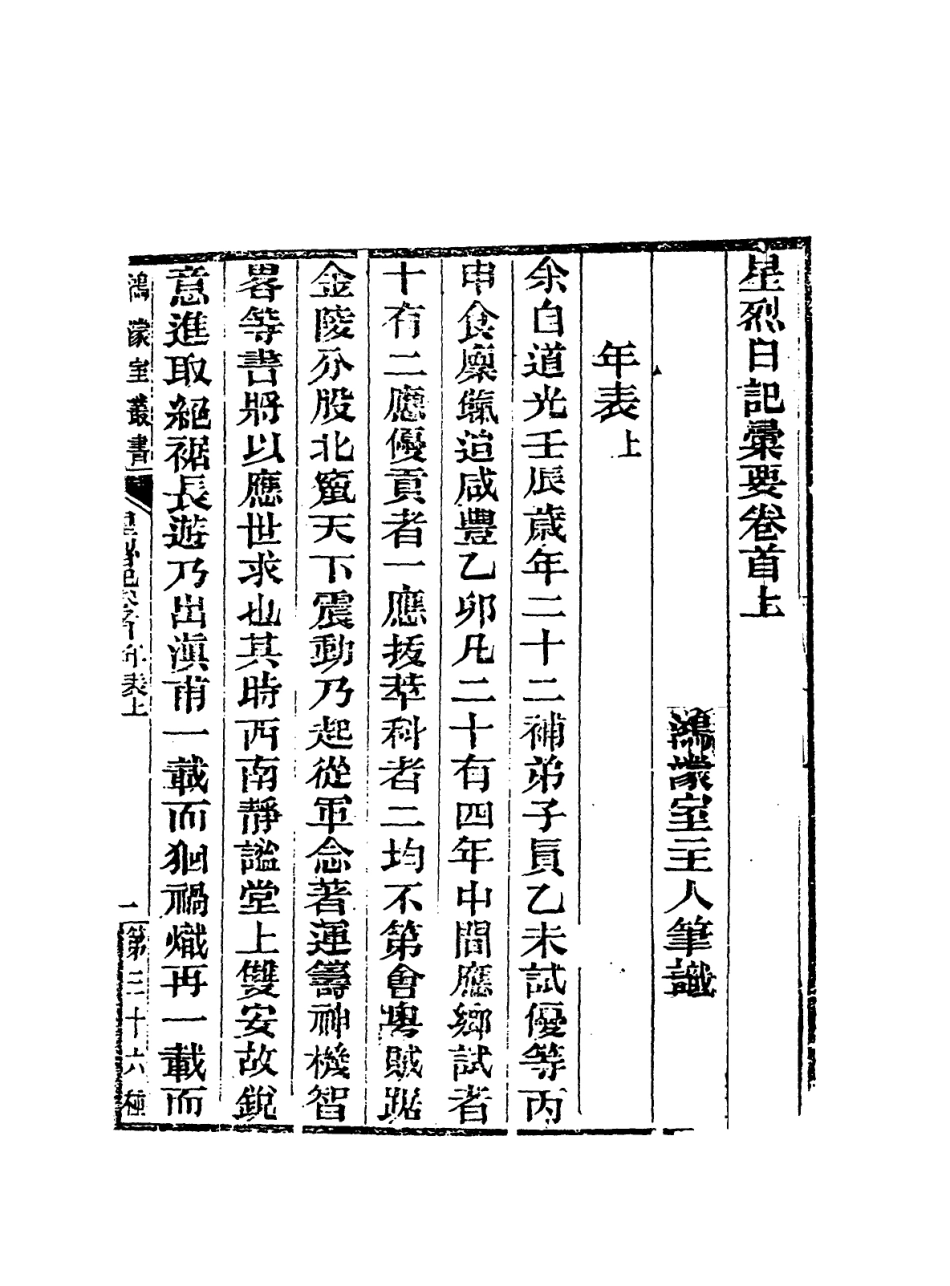 星烈日記彙要卷首上
鴻濛室主人筆識
年表上
余自道光壬辰歲年二十二補弟子員乙未試優等丙
申食廩餼迨咸豐乙卯凡二十有四年中間應鄉試者
十有二應優貢者一應拔萃科者二均不第會粵賊踞
金陵分股北竄天下震動乃起從軍念著運籌神機智
畧等書將以應世求也其時西南靜謐堂上雙安故銳
意進取絕裾長遊乃出滇甫一載而猓禍熾再一載而
鴻濛室叢書
年表上
一
第三十六種